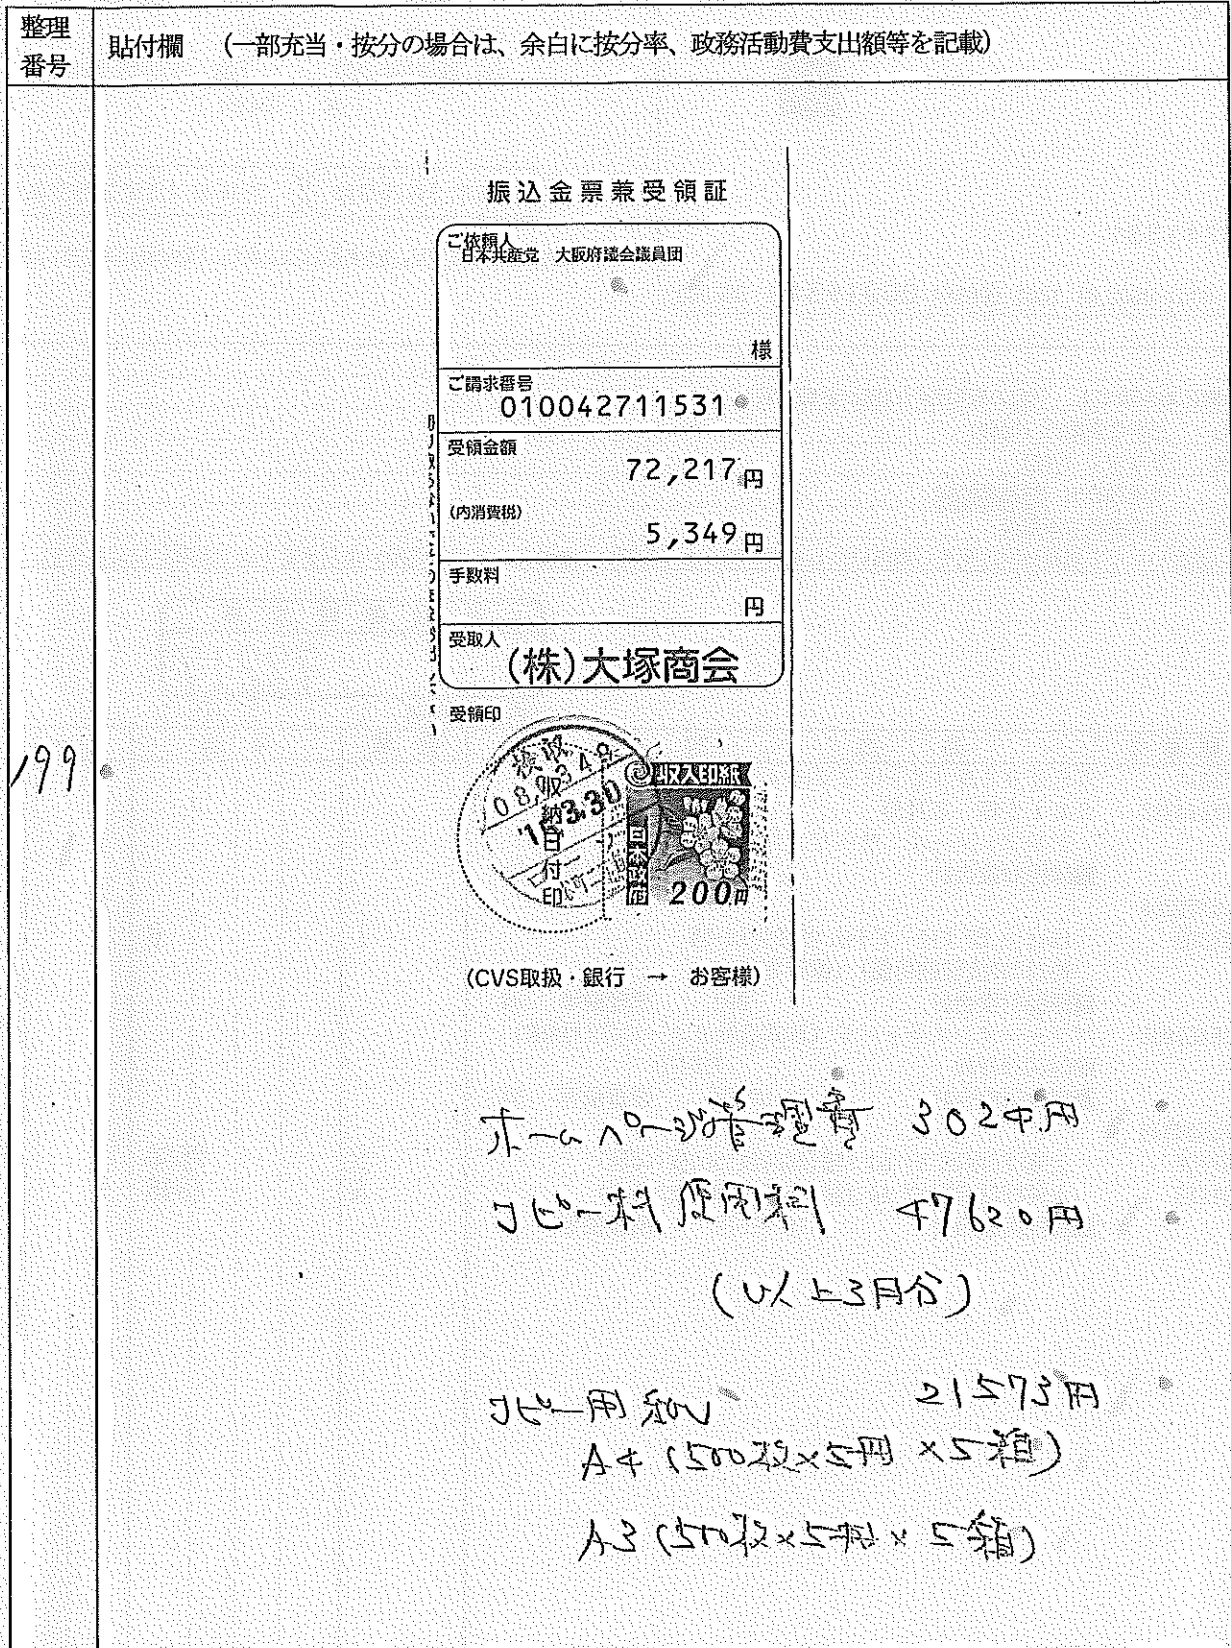 整理
番号
貼付欄　(一部充当・按分の場合は、余白に按分率、政務活動費支出額等を記載)
振込金票兼受領証
ご依頼人
日本共産党　大阪府議会議員団
様
ご請求番号
010042711531
受領金額
72,217円
(内消費税)
5,349円
手数料
円
受取人
(株)大塚商会
受領印
検収
収納日付印
3.30
収入印紙
日本政府
200円
199
(CVS取扱・銀行 → お客様)
ホームページ管理費 3024円
コピー料 使用料 47620円
(以上3月分)
コピー用紙 21573円
A4 (500枚×5円×5箱)
A3 (500枚×5×5箱)